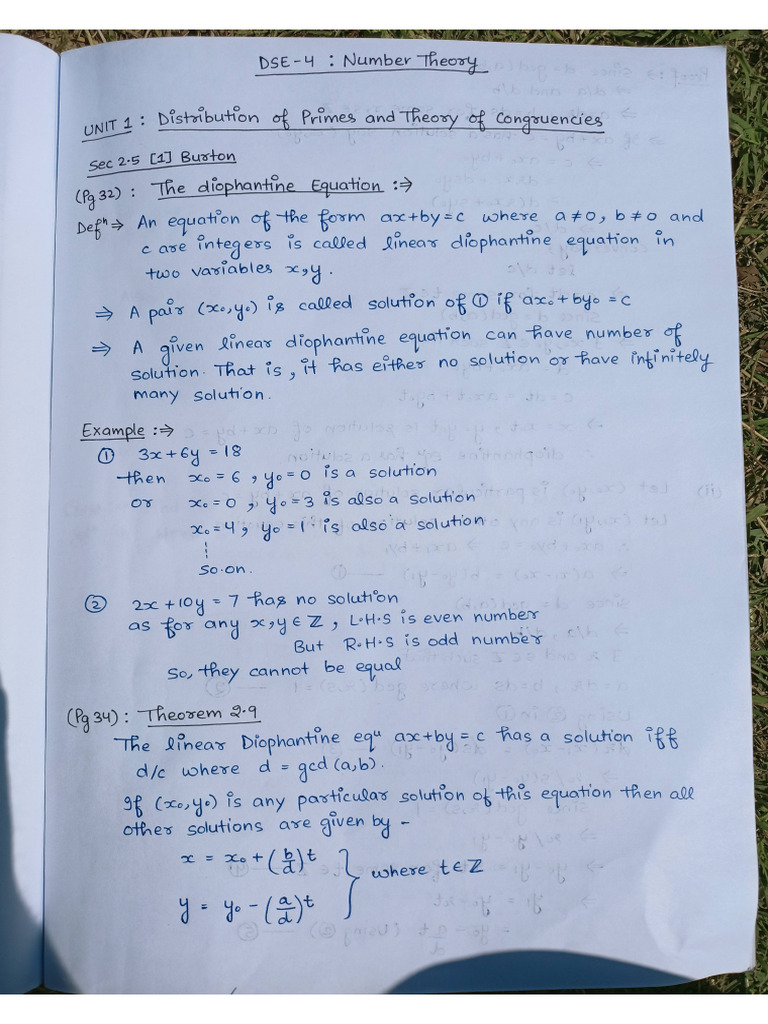 DSE-4 : Number Theory
UNIT 1 : Distribution of Primes and Theory of Congruencies
Sec 2.5 [1] Burton
(Pg 32) : The diophantine Equation :⇒
Defⁿ ⇒ An equation of the form ax+by=c where a≠0, b≠0 and
c are integers is called linear diophantine equation in
two variables x,y.
⇒ A pair (x₀,y₀) is called solution of ① if ax₀+by₀ = c
⇒ A given linear diophantine equation can have number of
solution. That is, it has either no solution or have infinitely
many solution.
Example :⇒
① 3x+6y = 18
then x₀ = 6, y₀ = 0 is a solution
or x₀ = 0, y₀ = 3 is also a solution
x₀ = 4, y₀ = 1 is also a solution
⋮
so on.
② 2x+10y = 7 has no solution
as for any x,y ∈ ℤ, L.H.S is even number
But R.H.S is odd number
So, they cannot be equal
(Pg 34) : Theorem 2.9
The linear Diophantine eqᵘ ax+by = c has a solution iff
d/c where d = gcd (a,b).
If (x₀,y₀) is any particular solution of this equation then all
other solutions are given by -
x = x₀ + (b/d)t } where t ∈ ℤ
y = y₀ - (a/d)t